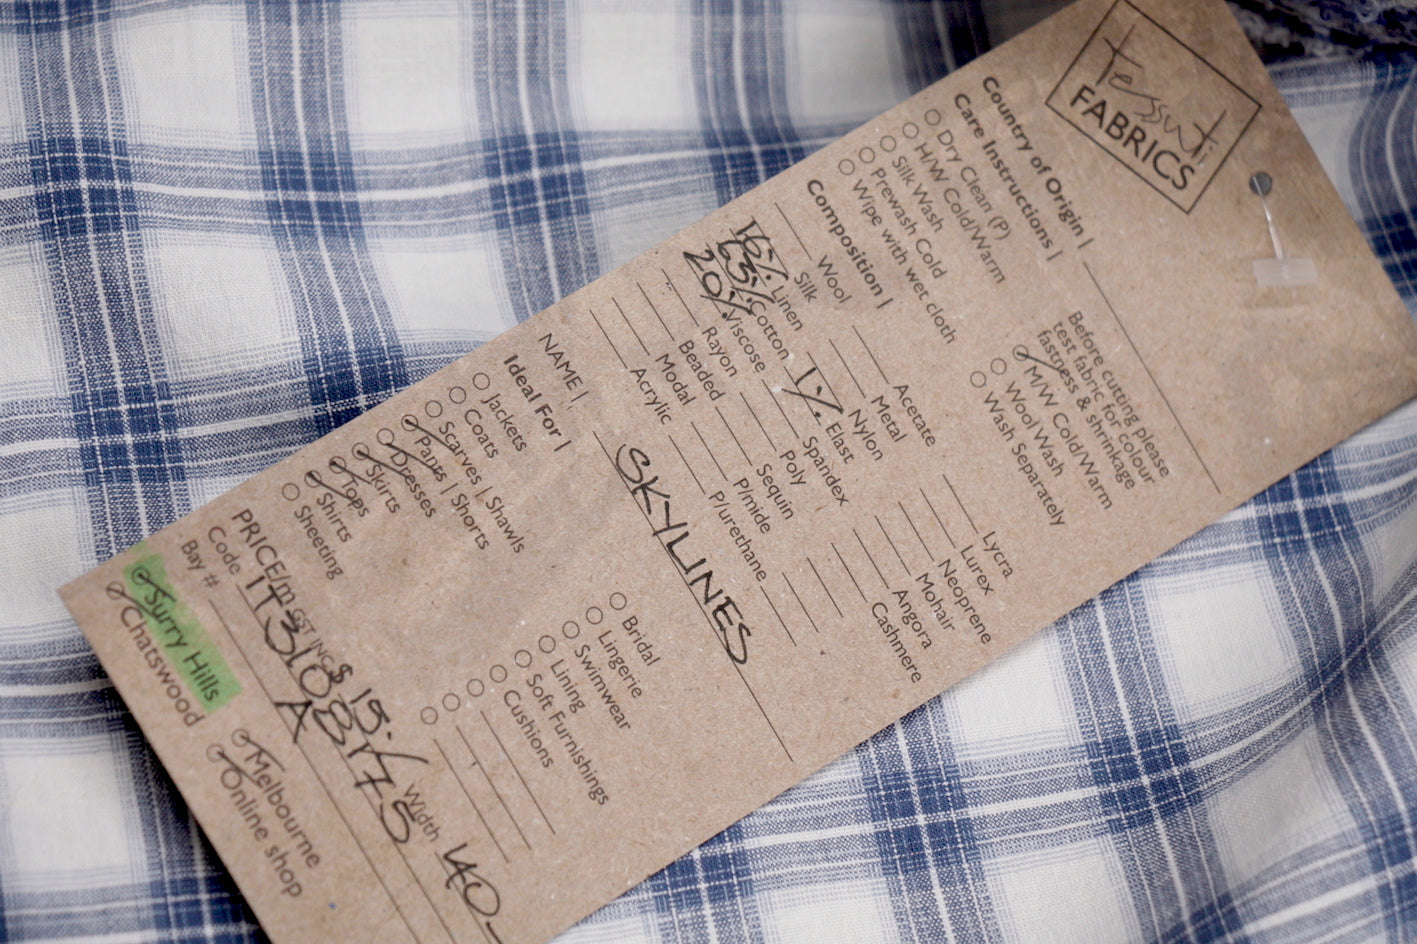 Tessuti
FABRICS
Country of Origin |
Care Instructions |
Dry Clean (P)
H/W Cold/Warm
Silk Wash
Prewash Cold
Wipe with wet cloth
Before cutting please
test fabric for colour
fastness & shrinkage
M/W Cold/Warm
Wool Wash
Wash Separately
Composition |
Wool Acetate Lycra
Silk Metal Lurex
16% Linen Nylon Neoprene
63% Cotton 1% Elast Mohair
20% Viscose Spandex Angora
Rayon Poly Cashmere
Beaded Sequin
Modal P/mide
Acrylic P/urethane
NAME | SKYLINES
Ideal For |
Jackets
Coats
Scarves | Shawls
Pants | Shorts
Dresses
Skirts
Tops
Shirts
Sheeting
Bridal
Lingerie
Swimwear
Lining
Soft Furnishings
Cushions
PRICE/m GST INC $ Width 140
Code
Bay # A
Surry Hills
Chatswood
Melbourne
Online shop